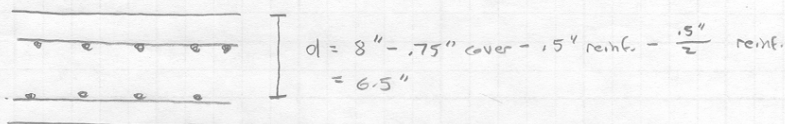 d = 8" - .75" cover - .5" reinf. - .5"/2 reinf.
= 6.5"